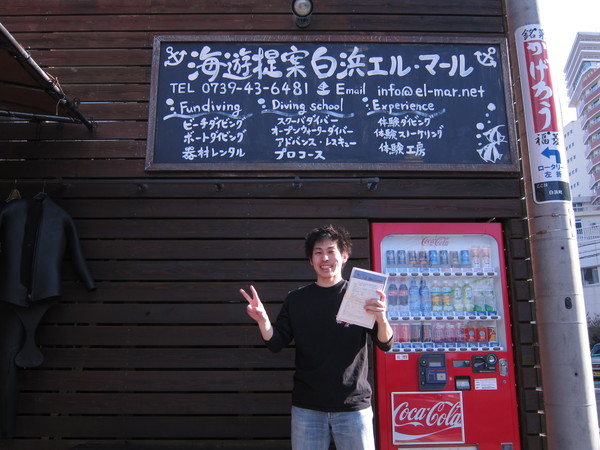 海遊提案白浜エル・マール
TEL 0739-43-6481 Email info@el-mar.net
Fundiving
ビーチダイビング
ボートダイビング
器材レンタル
Diving school
スクーバダイバー
オープンウォーターダイバー
アドバンス・レスキュー
プロコース
Experience
体験ダイビング
体験スノーケリング
体験工房
Coca-Cola
Coca-Cola
銘菓
かげろう
福菱
ロータリー
左折
ここは
白浜町